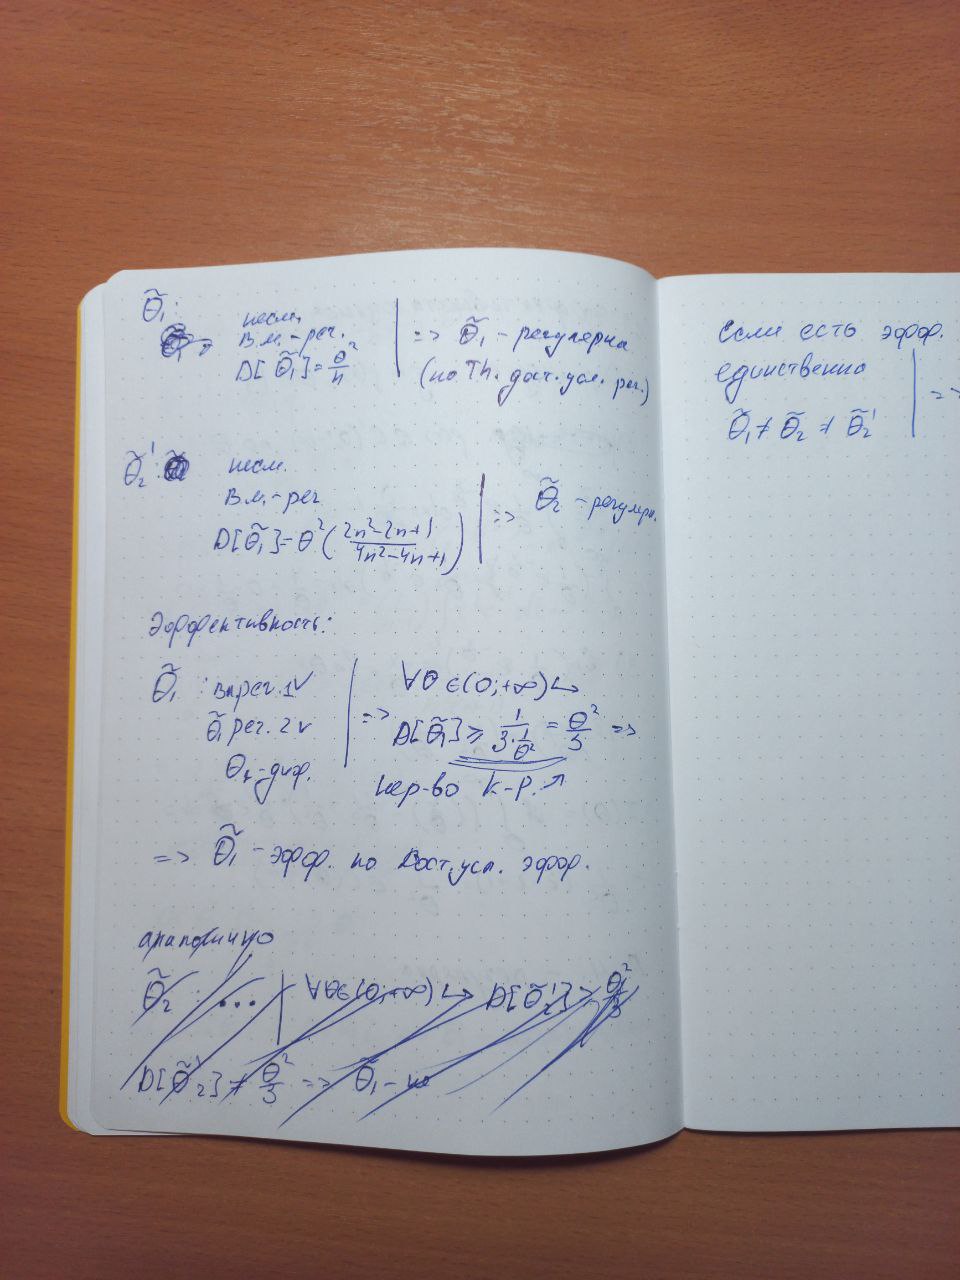 θ̃₁:
несм.
в.м. - рег.
D[θ̃₁] = θ²/n
=> θ̃₁ - регулярна
(по Th. дост. усл. рег.)
θ̃₂'
несм.
в.м. - рег
D[θ̃₁] = θ² ( (2n²-2n+1)/(4n²-4n+1) )
=> θ̃₂ - регулярн.
Эффективность:
θ̃₁ : вм рег. 1 ✓
θ̃₁ рег. 2 ✓
-диф.
=> ∀θ ∈ (0;+∞) ↪
D[θ̃₁] ≥ 1/(3·1/θ²) = θ²/3 =>
нер-во К-Р. ↗
=> θ̃₁ - эфф. по Дост. усл. эфф.
аналогично
θ̃₂ : ... | ∀θ∈(0;+∞) ↪ D[θ̃₂'] > θ²/3
D[θ̃₂'] ≠ θ²/3 => θ̃₁ - не
Если есть эфф.
единственна
θ̃₁ ≠ θ̃₂ ≠ θ̃₂'
=>